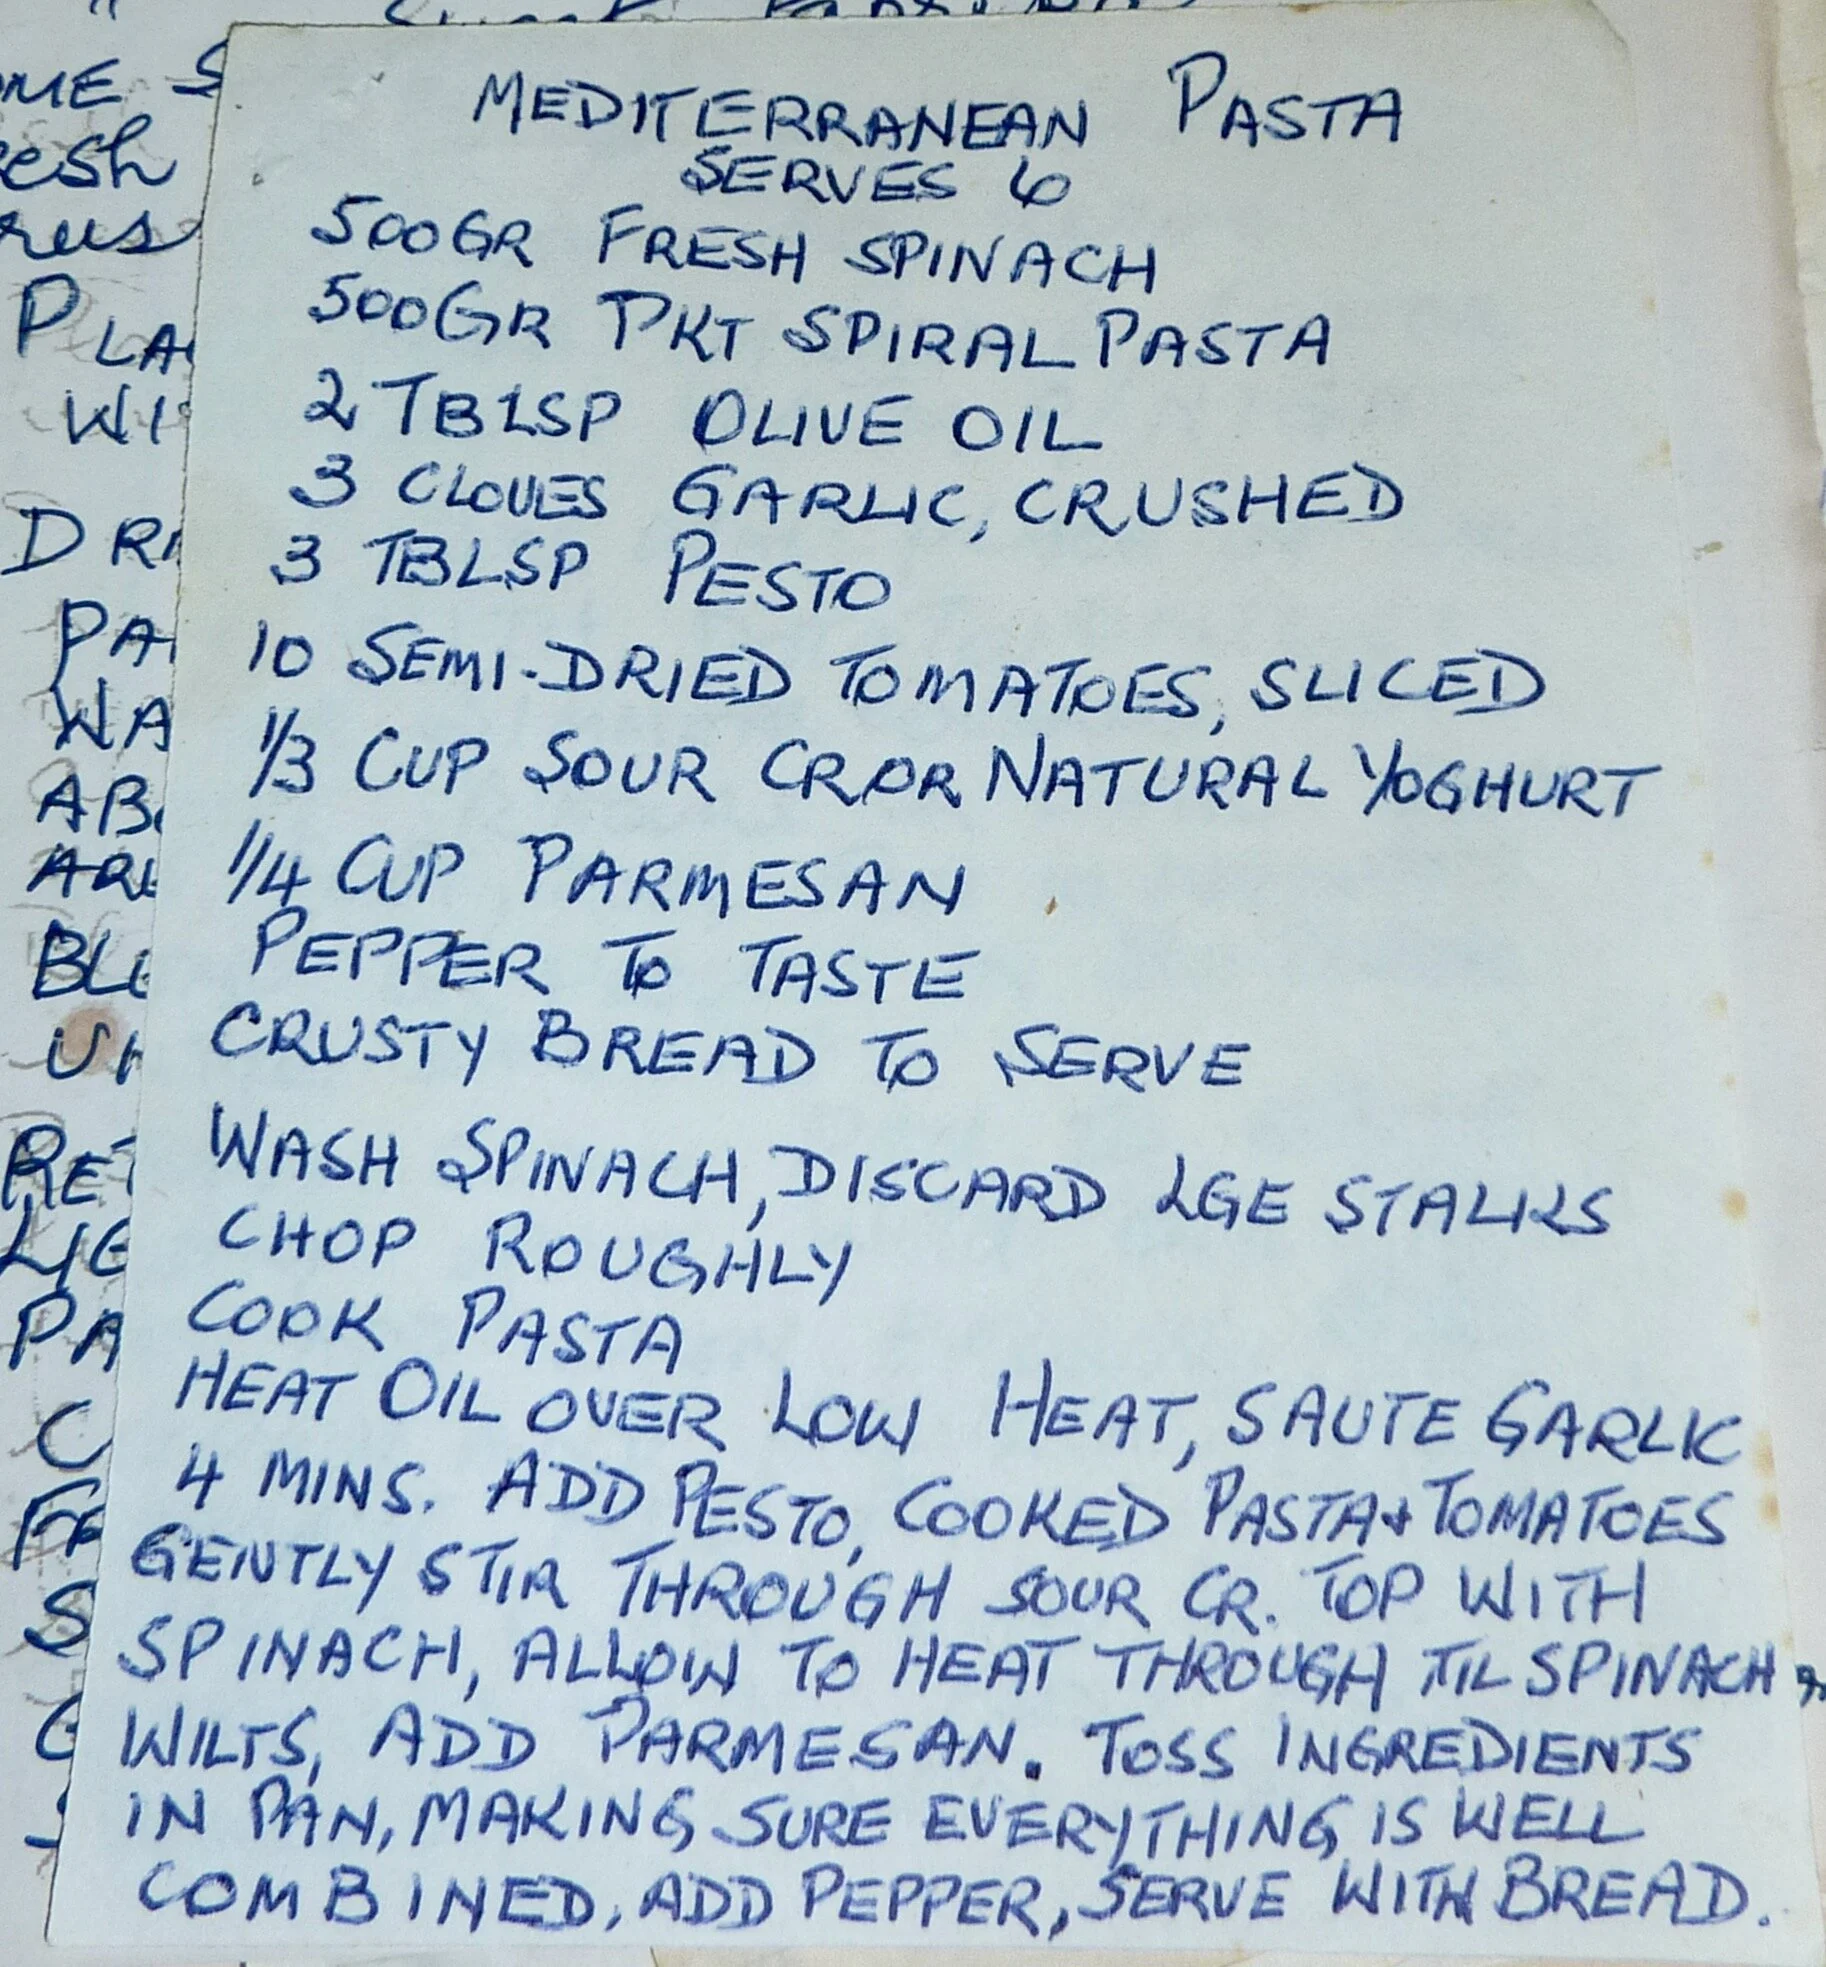 MEDITERRANEAN PASTA
SERVES 6
500GR FRESH SPINACH
500GR PKT SPIRAL PASTA
2 TBLSP OLIVE OIL
3 CLOVES GARLIC, CRUSHED
3 TBLSP PESTO
10 SEMI-DRIED TOMATOES, SLICED
1/3 CUP SOUR CR OR NATURAL YOGHURT
1/4 CUP PARMESAN
PEPPER TO TASTE
CRUSTY BREAD TO SERVE
WASH SPINACH, DISCARD LGE STALKS
CHOP ROUGHLY
COOK PASTA
HEAT OIL OVER LOW HEAT, SAUTE GARLIC
4 MINS. ADD PESTO, COOKED PASTA + TOMATOES
GENTLY STIR THROUGH SOUR CR. TOP WITH
SPINACH, ALLOW TO HEAT THROUGH TIL SPINACH
WILTS, ADD PARMESAN. TOSS INGREDIENTS
IN PAN, MAKING SURE EVERYTHING IS WELL
COMBINED, ADD PEPPER, SERVE WITH BREAD.